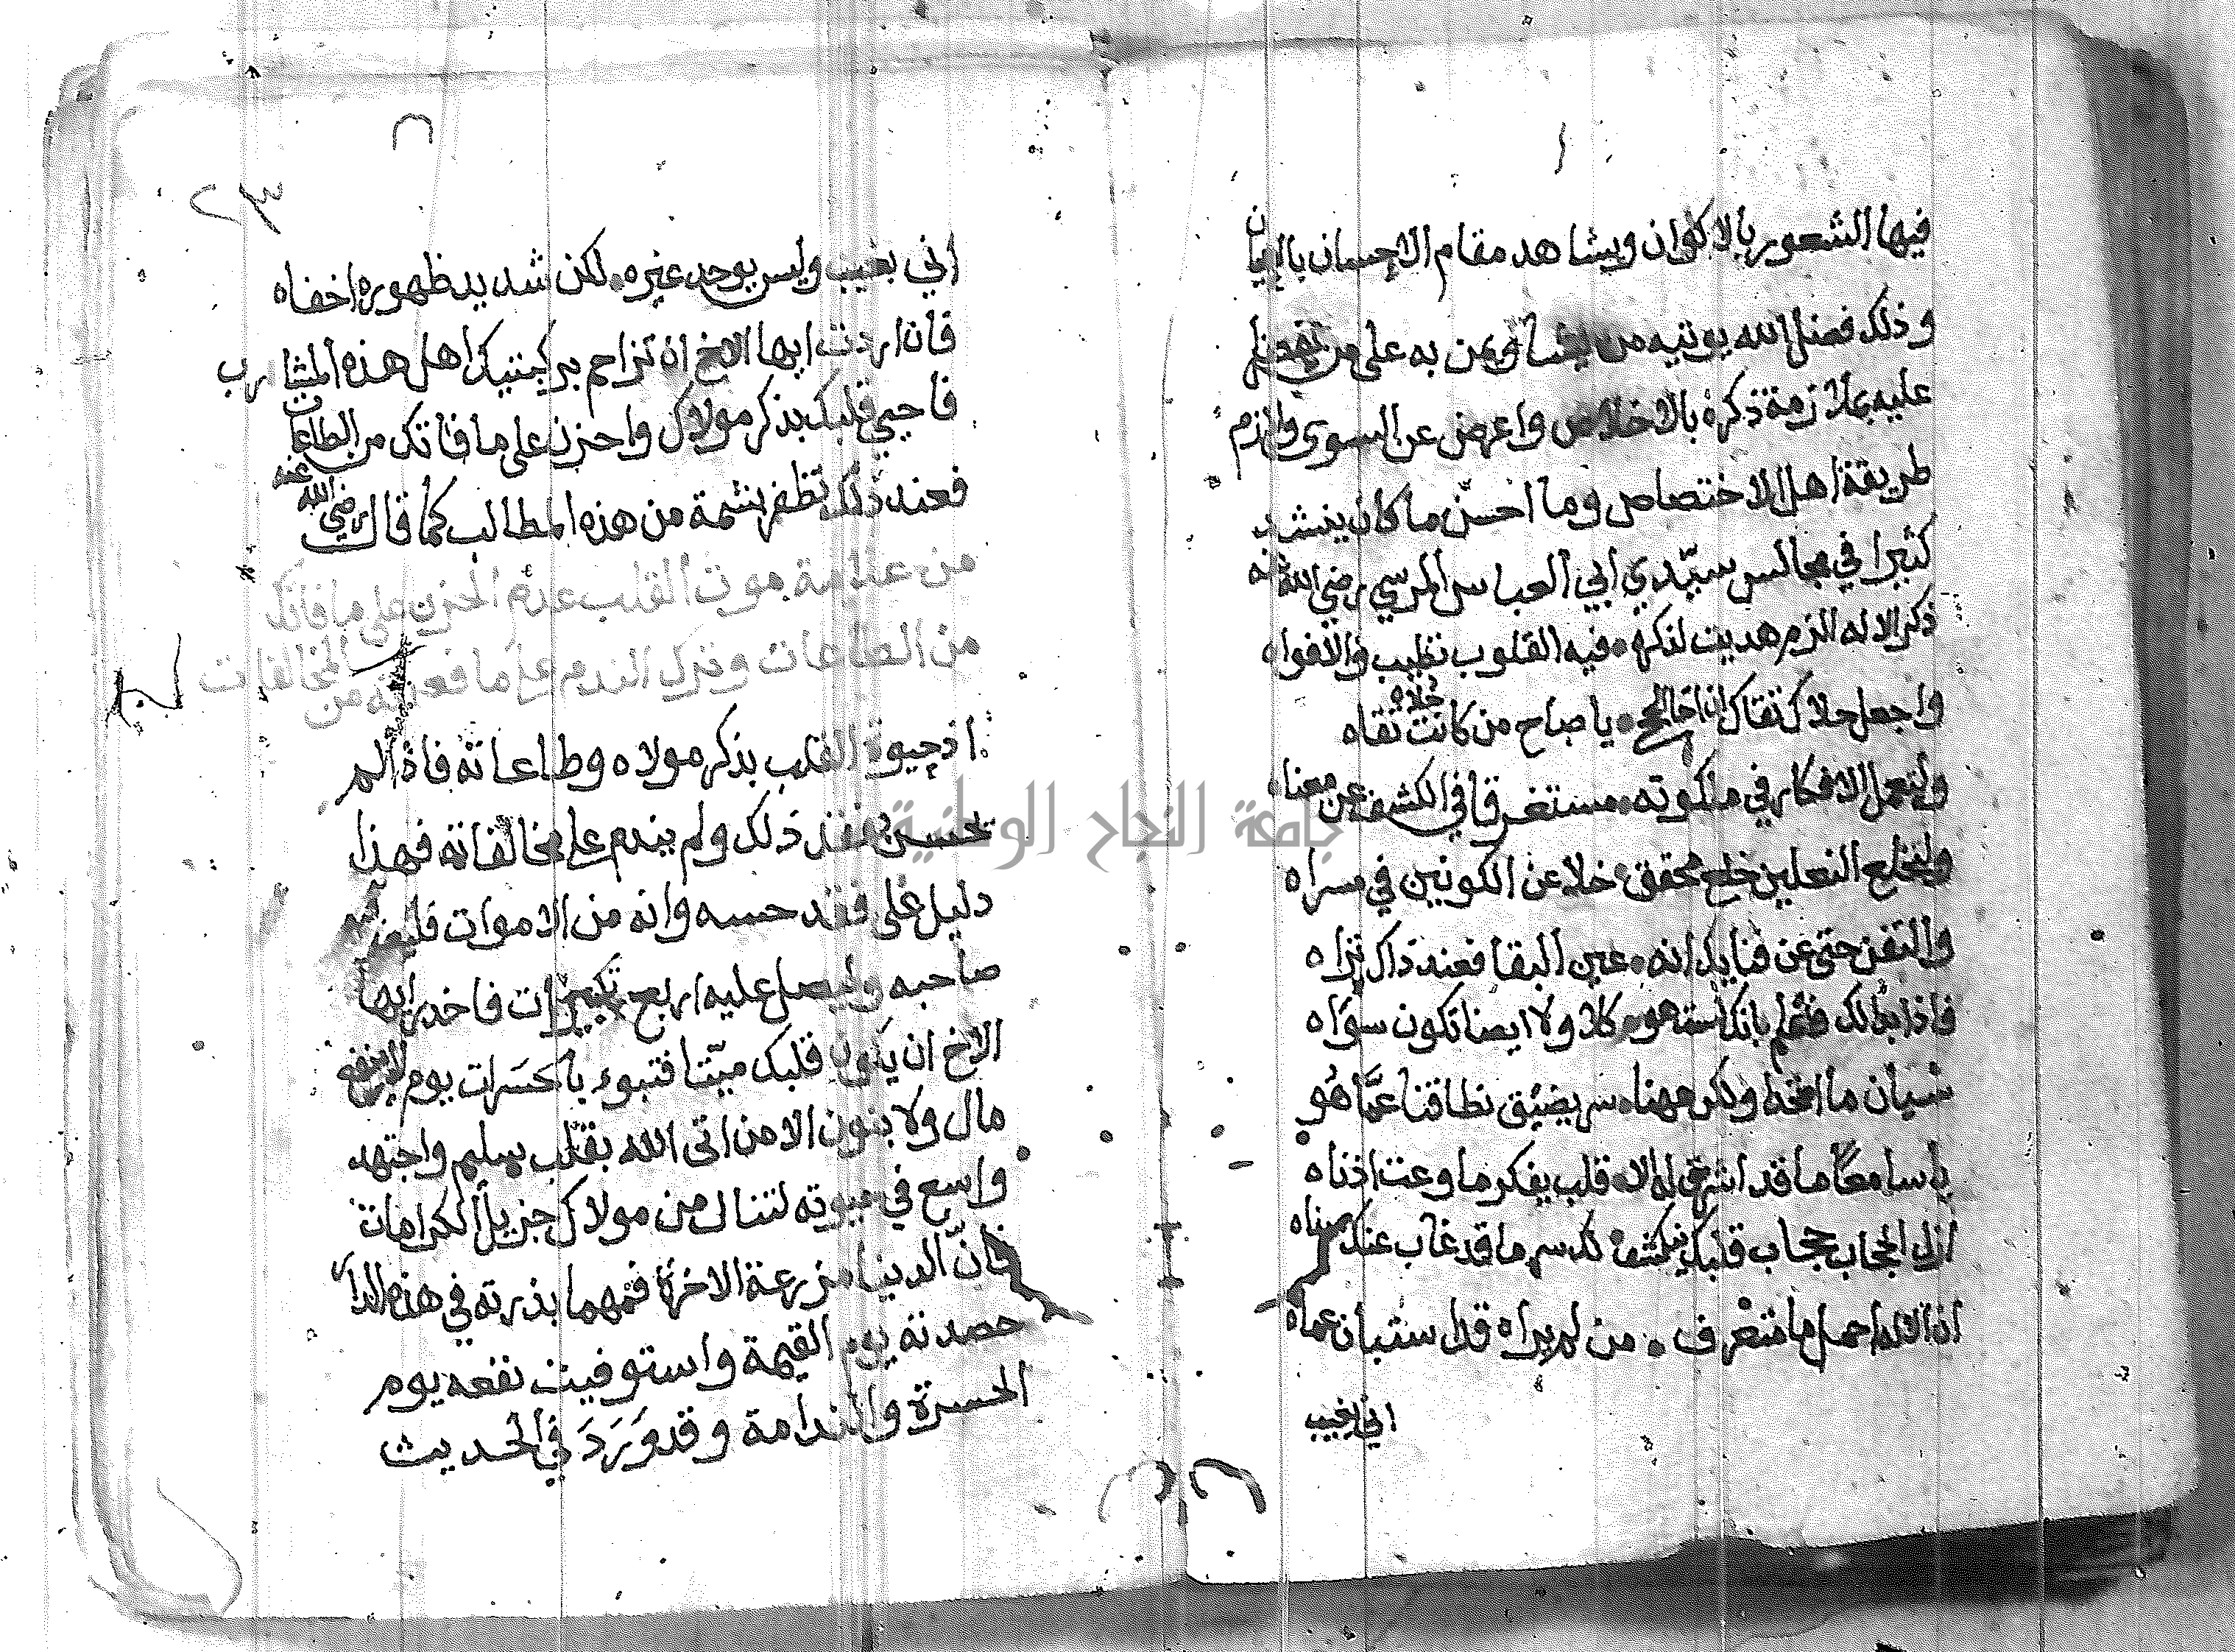 ١
فيها الشعور بالاكوان ويشاهد مقام الاحسان بالعيان
وذلك فضل الله يوتيه من يشآ ويمن به على من
عليه بملازمة ذكره بالاخلاص واعرض عن السوى ولازم
طريقة اهل الاختصاص وما احسن ما كان ينشد
كثيرا في مجالس سيّدي ابي العباس المرسي رضي الله عنه
ذكر الاله الزم هديت لذكره فيه القلوب تطيب والافواه
واجعل حلاك تقاك ان اخا الحجي يا صاح من كانت تقاه حلاه
ولتعمل الافكار في ملكوته مستغرقا في الكشف عن معناه
ولتخلع النعلين خلع محقق خلا عن الكونين في مسراه
ولتفن حتى عن فنايك انه عين البقا فعند ذاك تراه
فاذا بدا لك فلتعلم بانك لست هو كلا ولا ايضا تكون سواه
شيان ما اتحدا ولكن ههنا سر يضيق نطاقنا عمّا هو
يا سامعا ما قد اشرت له الاه قلب يفكر ما وعت اذناه
ازل الحجاب حجاب قلبك ينكشف لك سر ما قد غاب عنك سناه
ان الاله اجل ما متعرف من لم يراه قد استبان عماه
اني يغيب
٢
٢٣
اني يغيب وليس يوجد غيره لكن شديد ظهوره اخفاه
فان اردت ايها الاخ ان تزاحم بركبتيك اهل هذه المشارب
فاحيي قلبك بذكر مولاك واحزن على ما فاتك من الطاعات
فعند ذلك تظفر بشمة من هذه المطالب كما قال رضي الله عنه
من علامة موت القلب عدم الحزن على ما فاتك
من الطاعات وترك الندم على ما فعلته من المخالفات
اذ حيوة القلب بذكر مولاه وطاعاته فاذا لم
تحسن بفقد ذلك ولم يندم على مخالفاته فهذا
دليل على فقد حسه وانه من الاموات فليعز فيه
صاحبه وليصل عليه اربع تكبيرات فاحذر ايها
الاخ ان يكون قلبك ميّتا فتبوء بالحسرات يوم لا ينفع
مال ولا بنون الا من اتى الله بقلب سليم واجتهد
واسع في حيوته لتنال من مولاك جزيل الكرامات
فانّ الدينا مزرعة الاخرة فمهما بذرته في هذه الدار
حصدته يوم القيمة واستوفيت نفعه يوم
الحسرة والندامة وقد وَرَدَ في الحديث
جامعة النجاح الوطنية